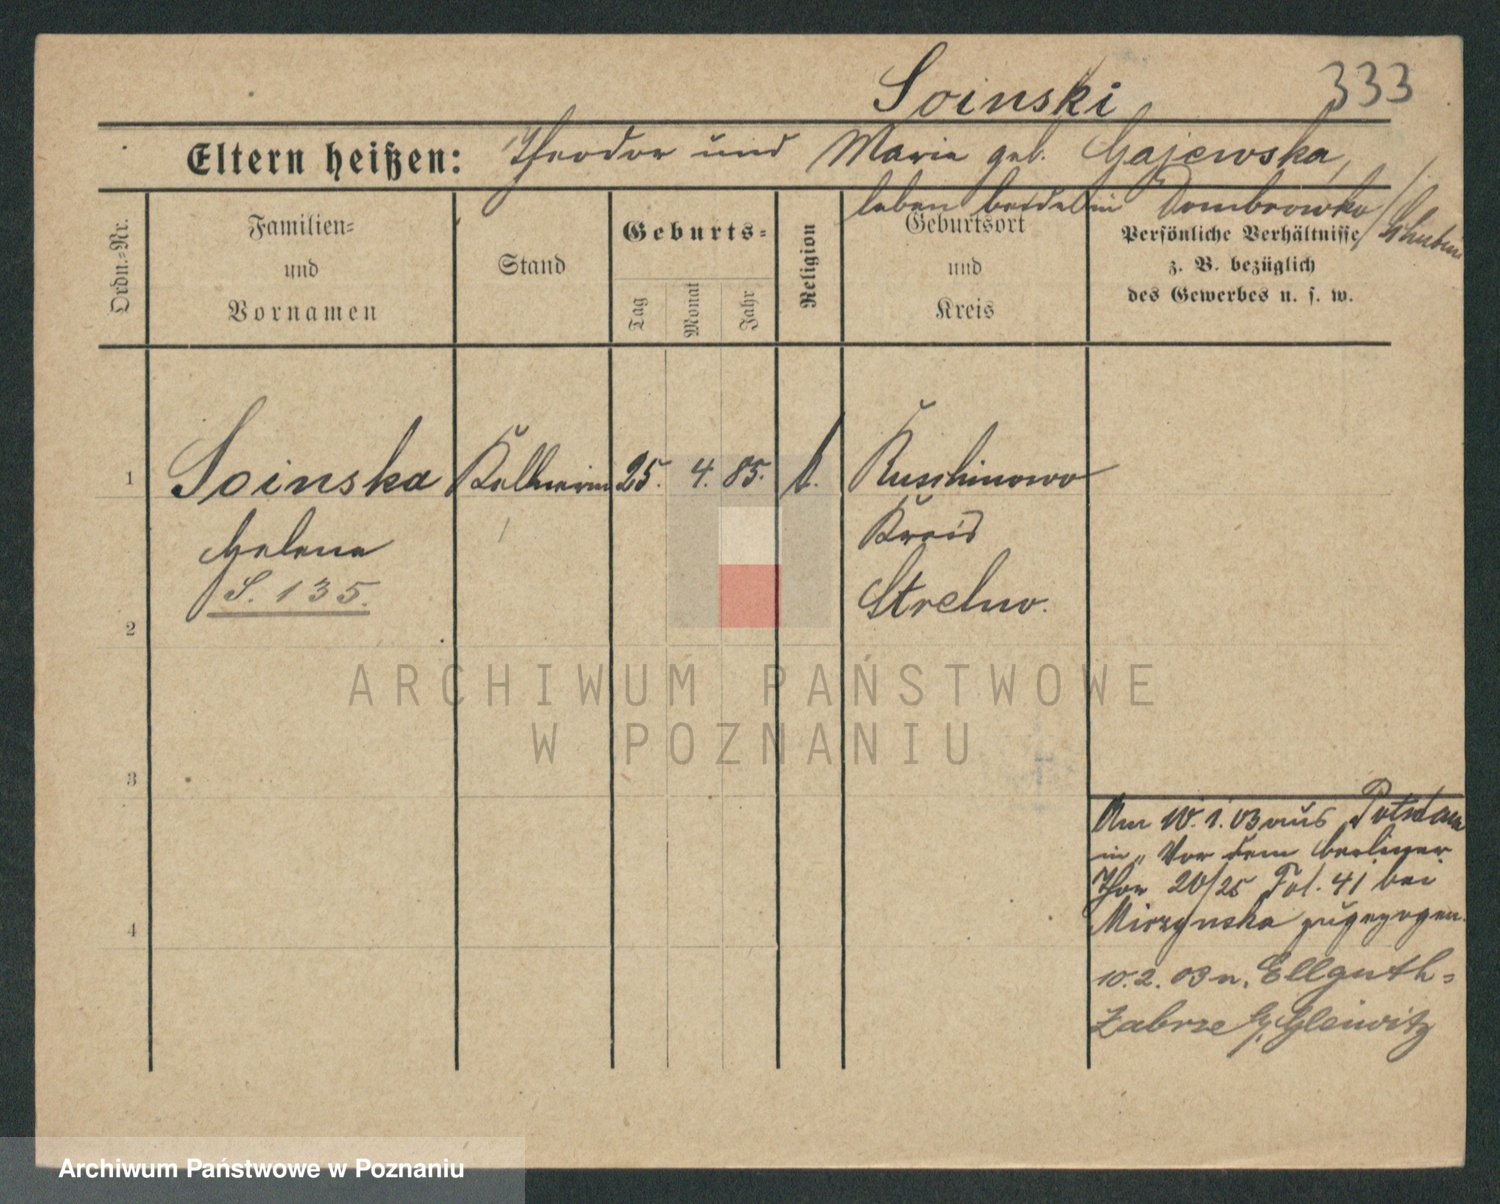 333
Soinski
Eltern heißen: Theodor und Maria geb. Gajewska,
leben beide in Dombrowko / Schubin
Ordn.-Nr.
Familien-
und
Vornamen
Stand
Geburts-
Tag
Monat
Jahr
Religion
Geburtsort
und
Kreis
Persönliche Verhältnisse
z. B. bezüglich
des Gewerbes u. s. w.
1
Soinska
Helena
S. 135.
Kellnerin
25. 4. 85.
k.
Ruschinowo
Kreis
Strelno.
2
3
4
Am 10. 1. 03 aus Potsdam
in „ Vor dem berliner
Thor 20/25 Fol. 41 bei
Mirzynska zugezogen.
10. 2. 03 n. Ellguth-
Zabrze Gleiwitz
ARCHIWUM PAŃSTWOWE
W POZNANIU
Archiwum Państwowe w Poznaniu